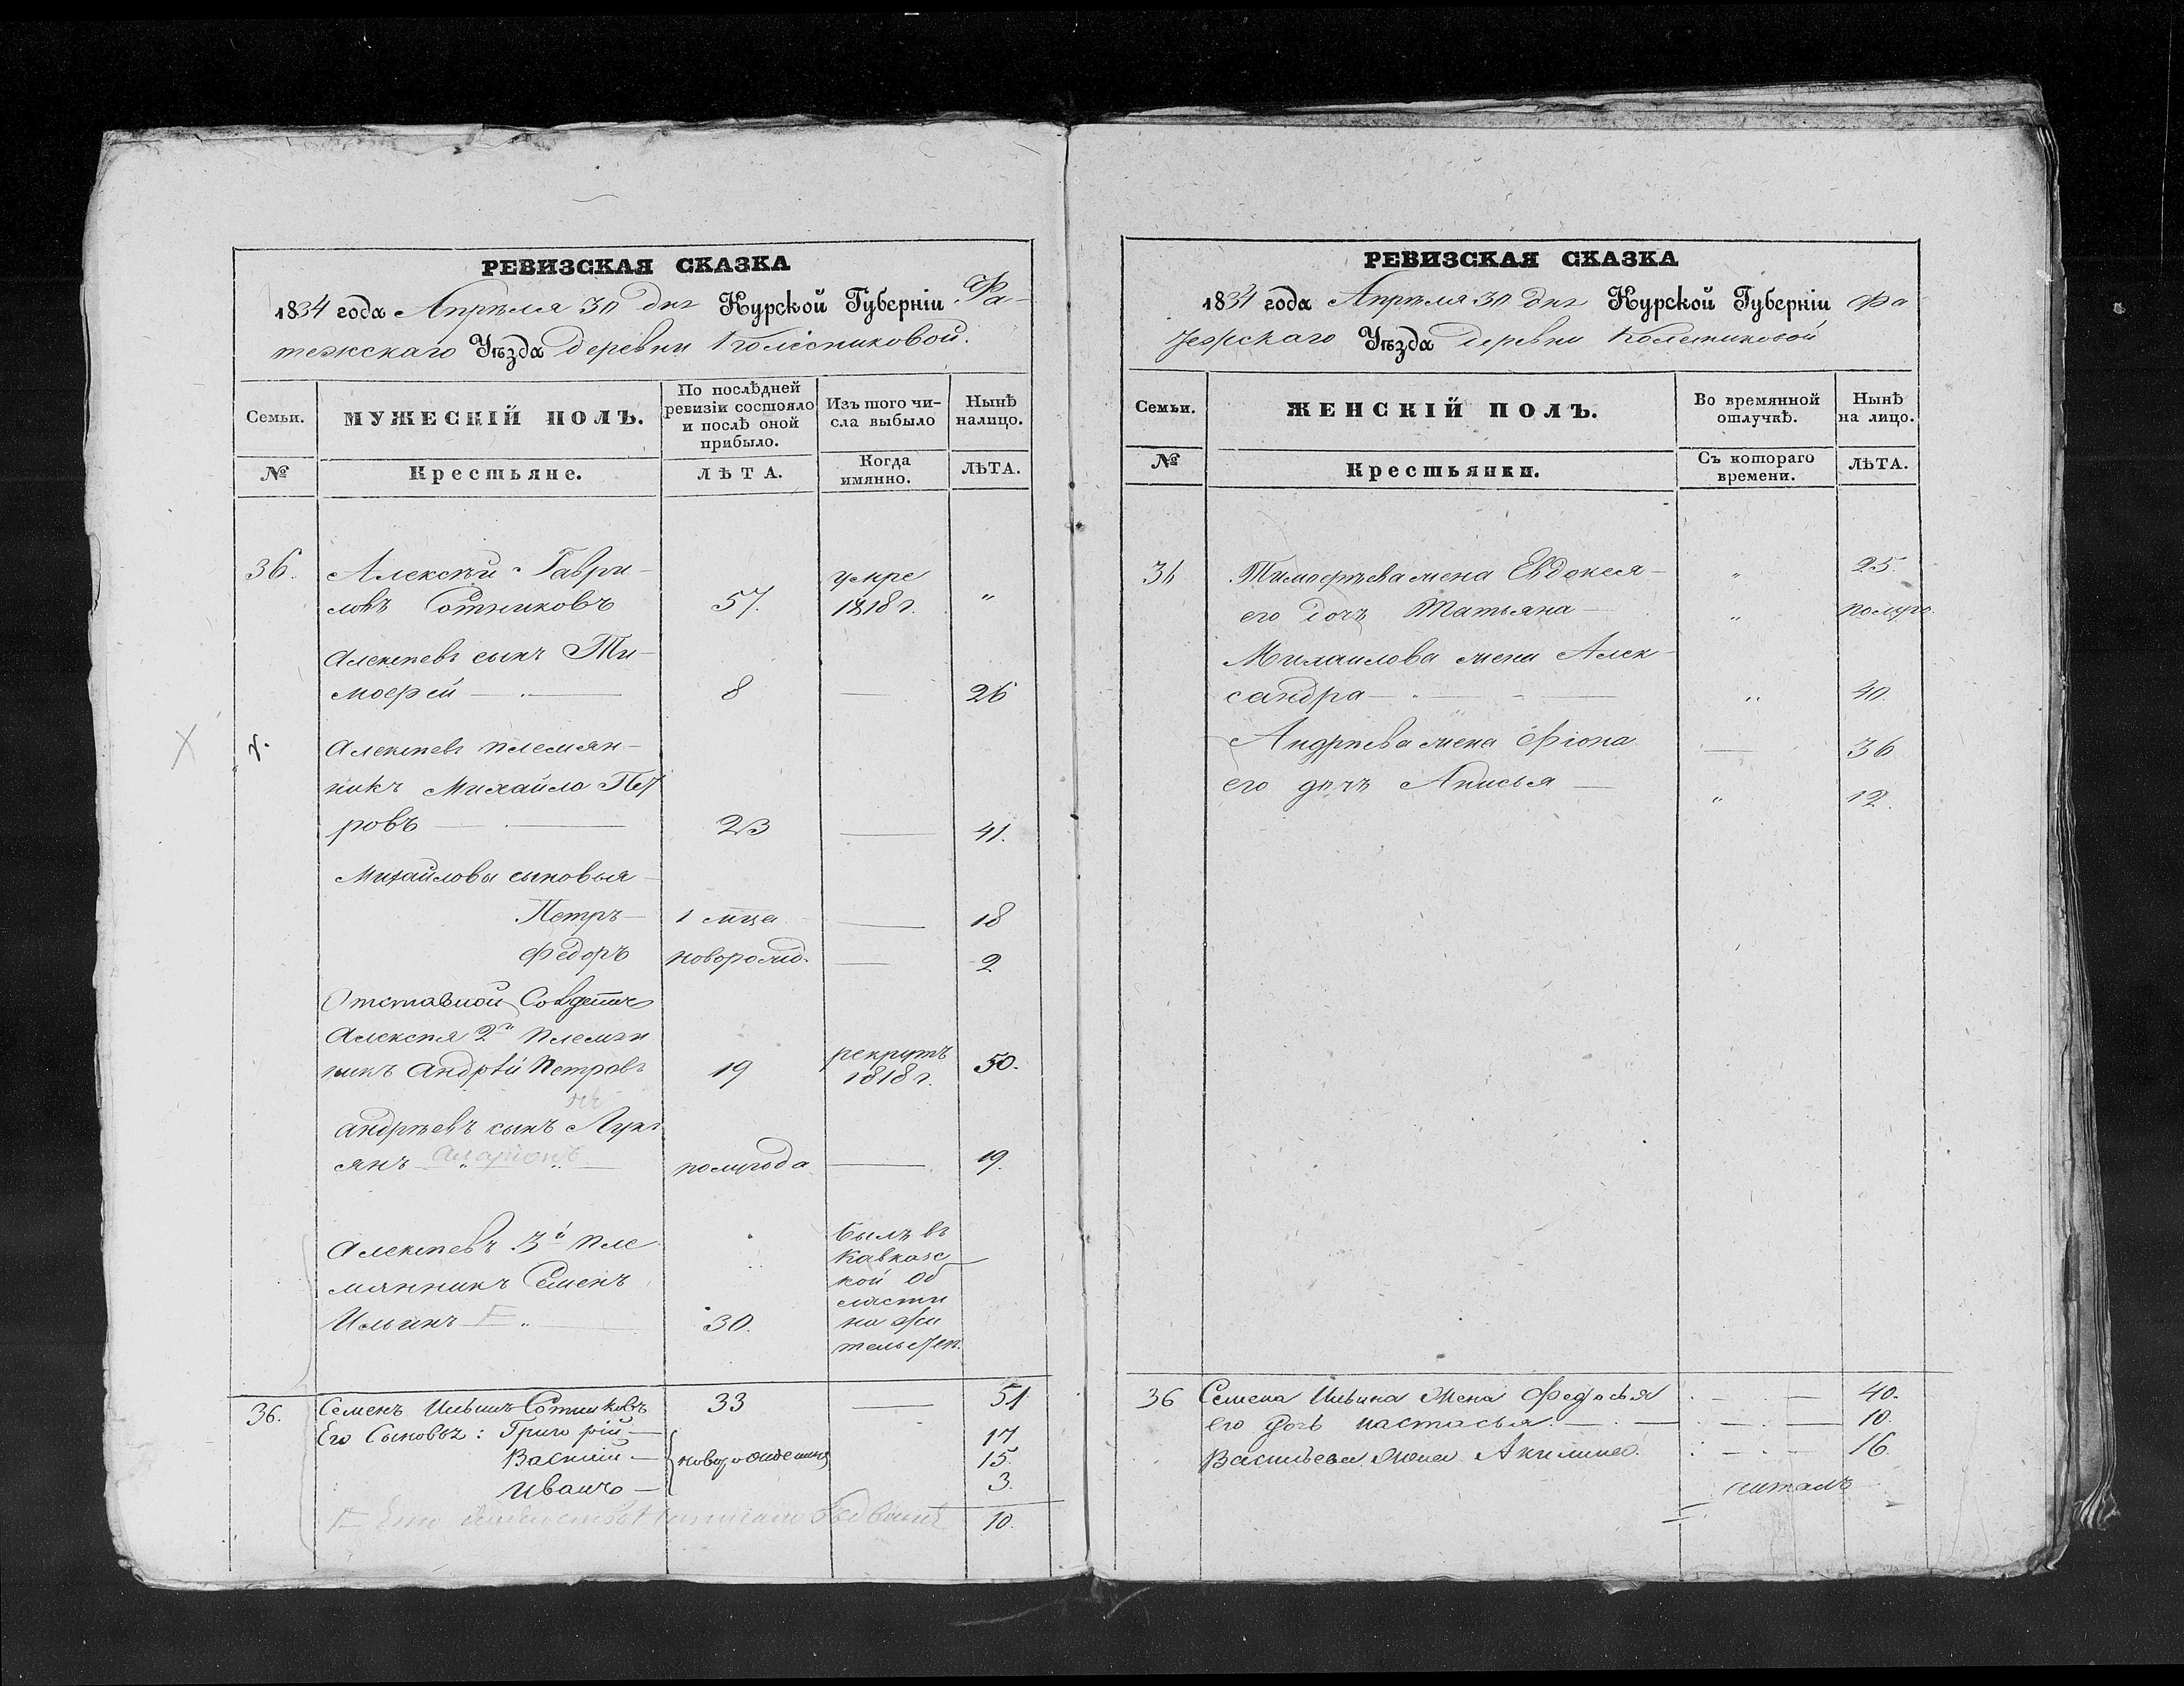 РЕВИЗСКАЯ СКАЗКА
1834 года Апрѣля 30 дня Курской Губерніи Фа-
тежскаго Уѣзда деревни Колесниковой.
Семьи. МУЖЕСКІЙ ПОЛЪ. По послѣдней ревизіи состояло и послѣ оной прибыло. Изъ того числа выбыло Нынѣ налицо.
№ Крестьяне. ЛѢТА. Когда имянно. ЛѢТА.
36. Алексѣй Гаври-
ловъ Сотниковъ 57. умре 1818 г. "
Алексѣевъ сынъ Ти-
мофей — 8 — 26
Алексѣевъ племян-
никъ Михайло Пет
ровъ — 23 — 41.
Михайловы сыновья
Петръ — 1 мца — 18
Федоръ новорожд. — 2
Отставной
Алексѣя 2й племян
никъ Андрѣй Петровъ 19 рекрутъ 1818 г. 50.
Андрѣевъ сынъ Лукь
янъ — полугода — 19.
Алексѣевъ 3й пле
мянникъ Семенъ
Ильинъ — 30. былъ въ
Кавказс
кой об
ласти
на жи
тельствѣ.
36. Семенъ Ильинъ Сотниковъ 33 — 51
Его Сыновья: Григорій — 17
Василій — новорожденныя 15.
Иванъ — 3.
10.
РЕВИЗСКАЯ СКАЗКА
1834 года Апрѣля 30 дня Курской Губерніи Фа
тежскаго Уѣзда деревни Колесниковой
Семьи. ЖЕНСКІЙ ПОЛЪ. Во времянной отлучкѣ. Нынѣ на лицо.
№ Крестьянки. Съ котораго времени. ЛѢТА.
36 Тимофѣева жена Евдокея — " 25.
его дочь Татьяна — " полуго.
Михаилова жена Алек-
сандра — " 40.
Андрѣева жена Фіона — 36
его дочь Анисья — " 12.
36 Семена Ильина жена Федосья — 40.
его дочь Настасья. — 10.
Васильева жена Акилина. — 16.
читалъ